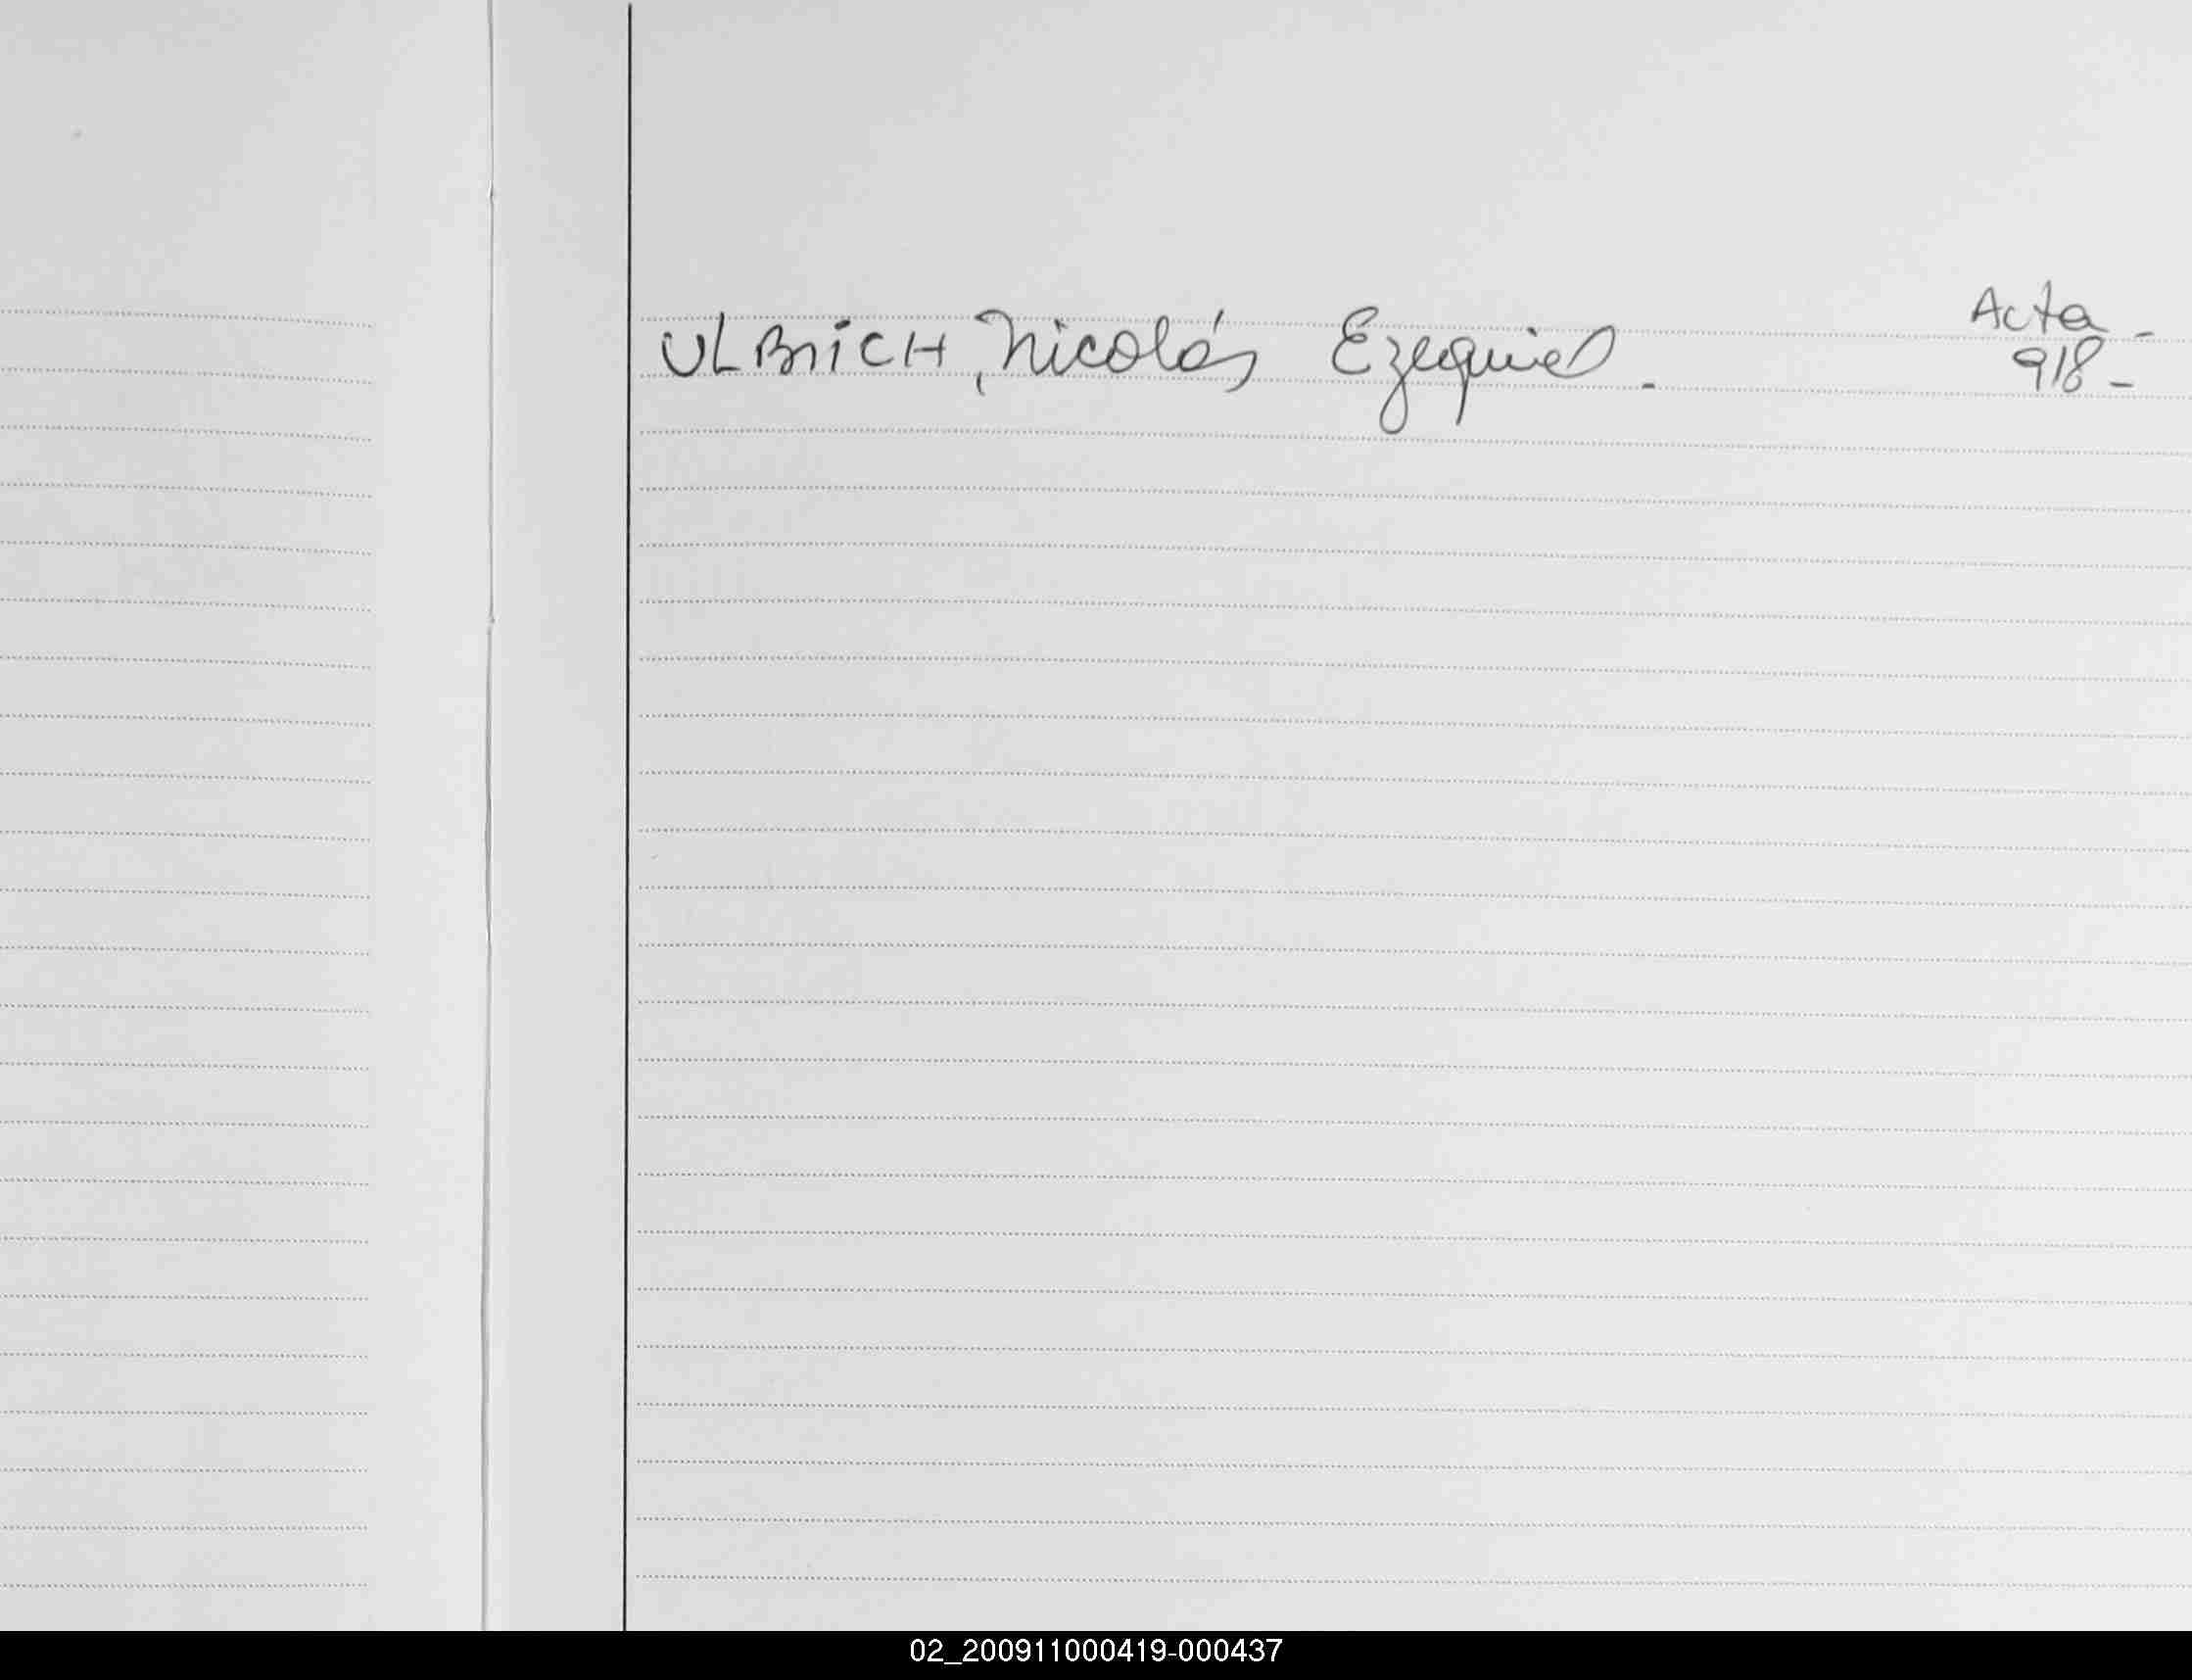 ULBRICH, Nicolás Ezequiel.
Acta -
918 -
02_200911000419-000437